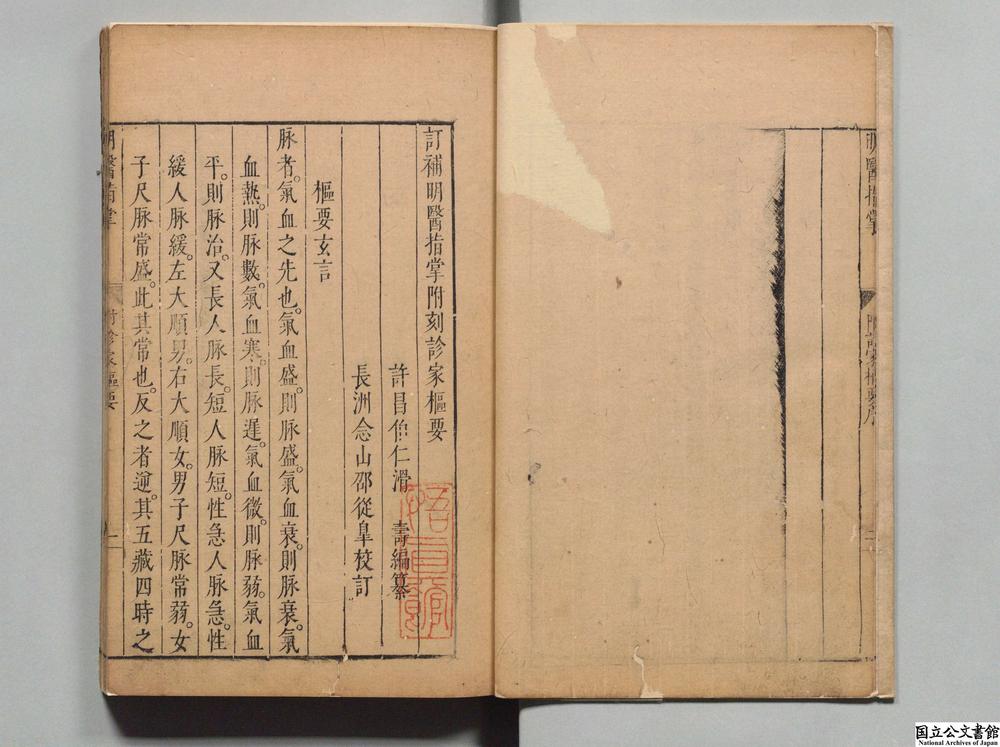 明醫指掌
訂補明醫指掌附刻診家樞要
許昌伯仁滑　壽編纂
長洲念山邵從皐校訂
樞要玄言
脉者。氣血之先也。氣血盛。則脉盛。氣血衰。則脉衰。氣
血熱。則脉數。氣血寒。則脉遲。氣血微。則脉弱。氣血
平。則脉治。又長人脉長。短人脉短。性急人脉急。性
緩人脉緩。左大順男。右大順女。男子尺脉常弱。女
子尺脉常盛。此其常也。反之者逆。其五藏四時之
明醫指掌
附診家樞要
一
国立公文書館
National Archives of Japan